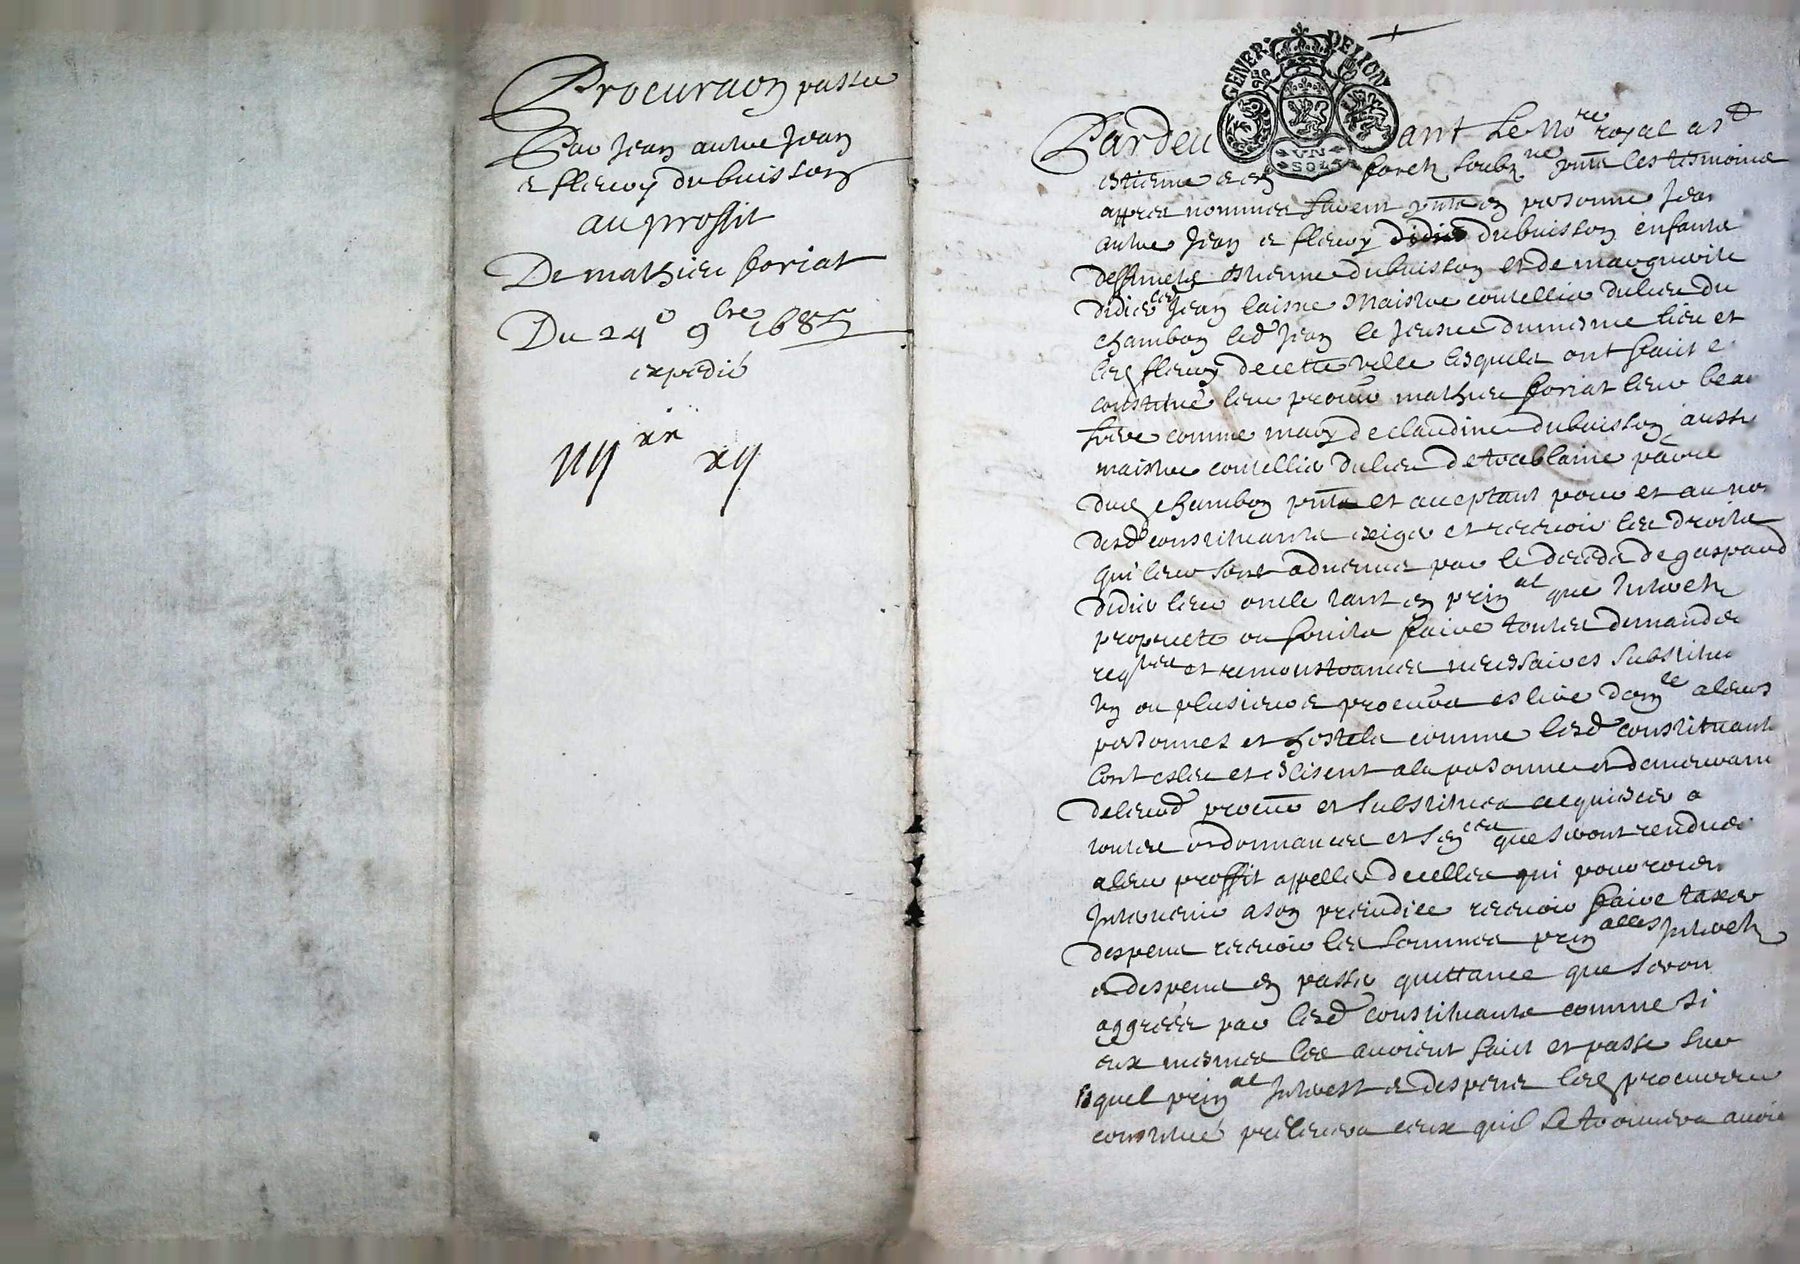 Procuraon passee
Par Jean autre Jean
e fleury dubuisson
au proffit
De mathieu foriat
Du 24e 9bre 1685
expedié
xx xij
GENER. DE LION
VN SOL
Pardeuant Le Nore royal a Sd
estienne e en forest soubzne pnts les tesmoins
appres nommes furent pnts en personne Jean
autre Jean e fleury dubuisson enfants
deffunctz estienne dubuisson et de marguerite
Didier led Jean laisne Maistre coutellier du lieu du
chambon led Jean le Jeune du mesme lieu et
led fleury de cette ville lesquels ont faict e
constitué leur procur mathieu foriat leur beau
frere comme mary de claudine dubuisson aussy
maistre coutellier du lieu de
dud chambon pnt et acceptant pour et au nom
desd constituants exiger et recevoir les droits
qui leur sont aduenus par le deceds de gaspard
didier leur oncle tant en prinal que Interestz
proprieté ou fruits faire toutes demandes
reqtes et remonstrances necessaires substituer
Un ou plusieurs procurs eslire domlle a leurs
personnes et hostels comme lesd constituants
lont esleu et eslisent a la personne et demeurant
de leurd procur et substitues acquiescer a
toutes ordonnances et sences que seront rendues
a leur proffit appeller de celles qui pourroient
Interuenir a son preiudice recevoir faire taxer
despens recevoir les sommes prinalles Interestz
e despens en passer quittance que seron
aggreées par lesd constituants comme si
eux mesmes les auoient faict et passe sur
lequel prinal Interest e despens led procureur
constitué prelevera ceux quil se trouuera auoir